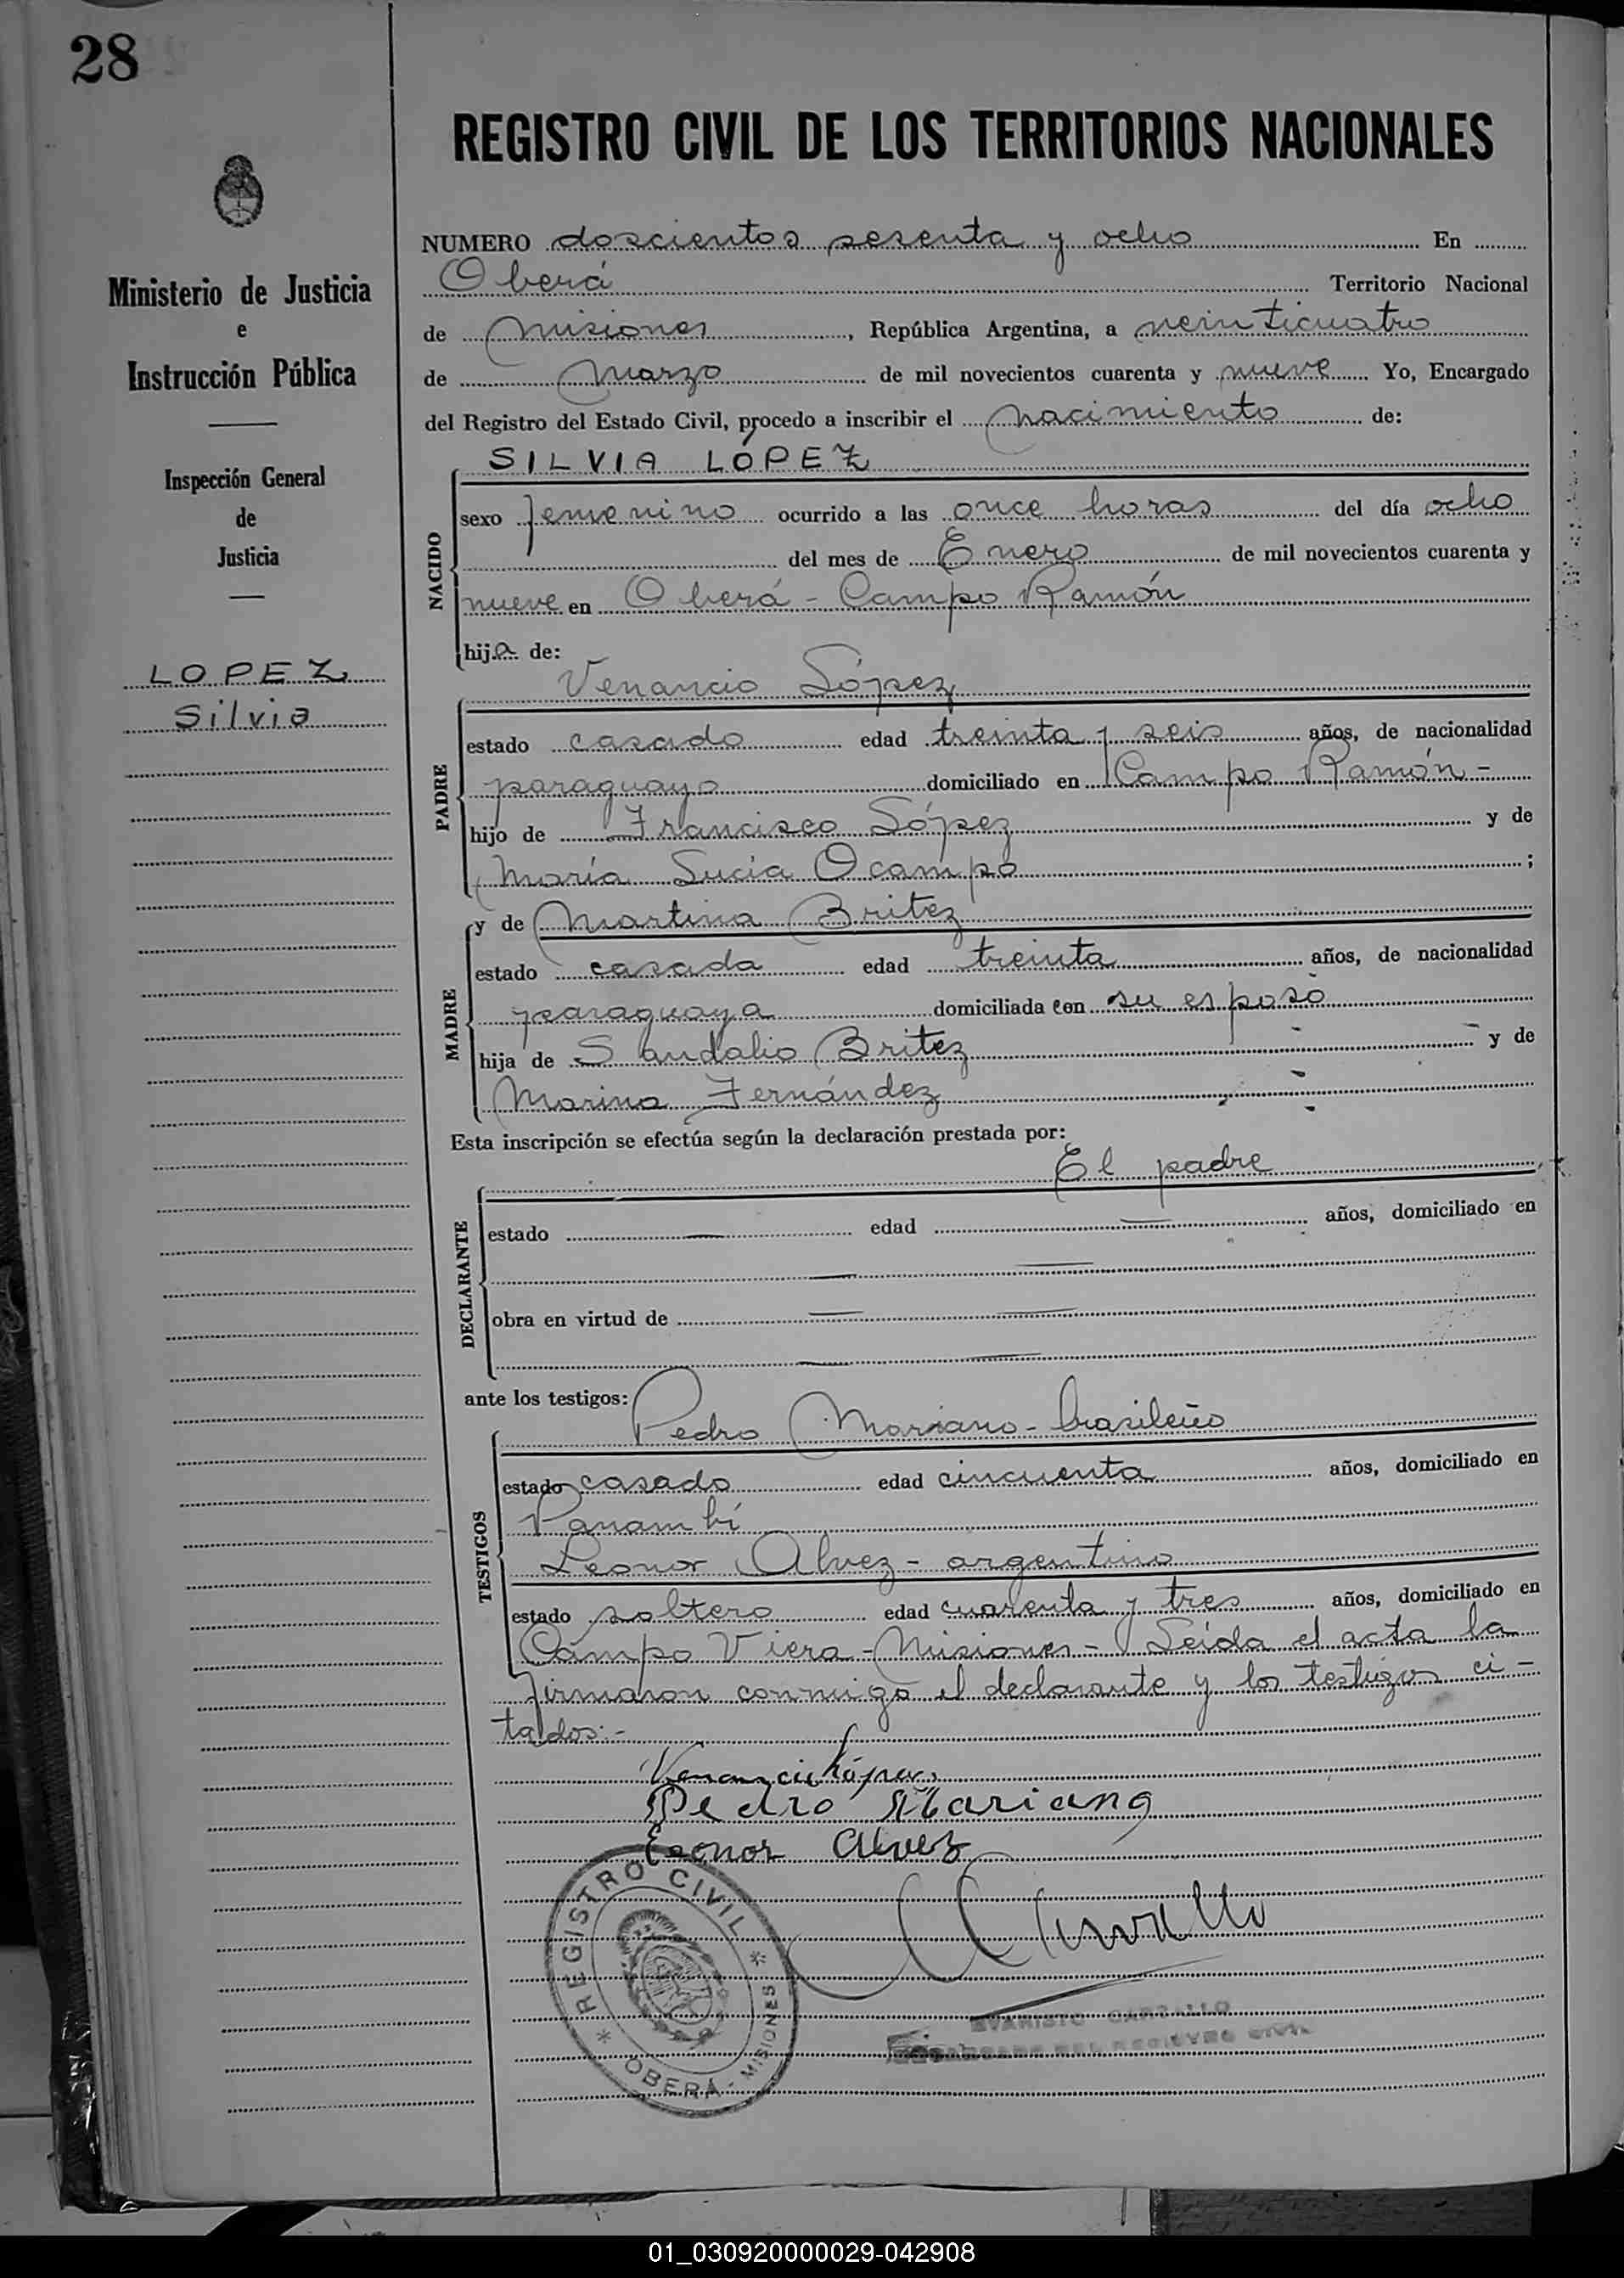 28
Ministerio de Justicia
e
Instrucción Pública
Inspección General
de
Justicia
LOPEZ
Silvia
REGISTRO CIVIL DE LOS TERRITORIOS NACIONALES
NUMERO doscientos sesenta y ocho En
Oberá Territorio Nacional
de Misiones, República Argentina, a veinticuatro
de Marzo de mil novecientos cuarenta y nueve Yo, Encargado
del Registro del Estado Civil, procedo a inscribir el nacimiento de:
SILVIA LÓPEZ
NACIDO
sexo femenino ocurrido a las once horas del día ocho
del mes de Enero de mil novecientos cuarenta y
nueve en Oberá - Campo Ramón
hija de:
Venancio López
PADRE
estado casado edad treinta y seis años, de nacionalidad
paraguayo domiciliado en Campo Ramón -
hijo de Francisco López y de
María Lucia Ocampo ;
y de Martina Britez
MADRE
estado casada edad treinta años, de nacionalidad
paraguaya domiciliada con su esposo
hija de Sandalio Britez y de
Marina Fernández
Esta inscripción se efectúa según la declaración prestada por:
El padre
DECLARANTE
estado edad años, domiciliado en
obra en virtud de
ante los testigos:
Pedro Mariano - brasileño
TESTIGOS
estado casado edad cincuenta años, domiciliado en
Panambí
Leonor Alvez - argentino
estado soltero edad cuarenta y tres años, domiciliado en
Campo Viera - Misiones - Leida el acta la
firmaron conmigo el declarante y los testigos ci-
tados:-
Venancio López
Pedro Mariano
Leonor Alvez
REGISTRO CIVIL
OBERÁ - MISIONES
EVARISTO CARBALLO
ENCARGADO DEL REGISTRO CIVIL
01_030920000029-042908